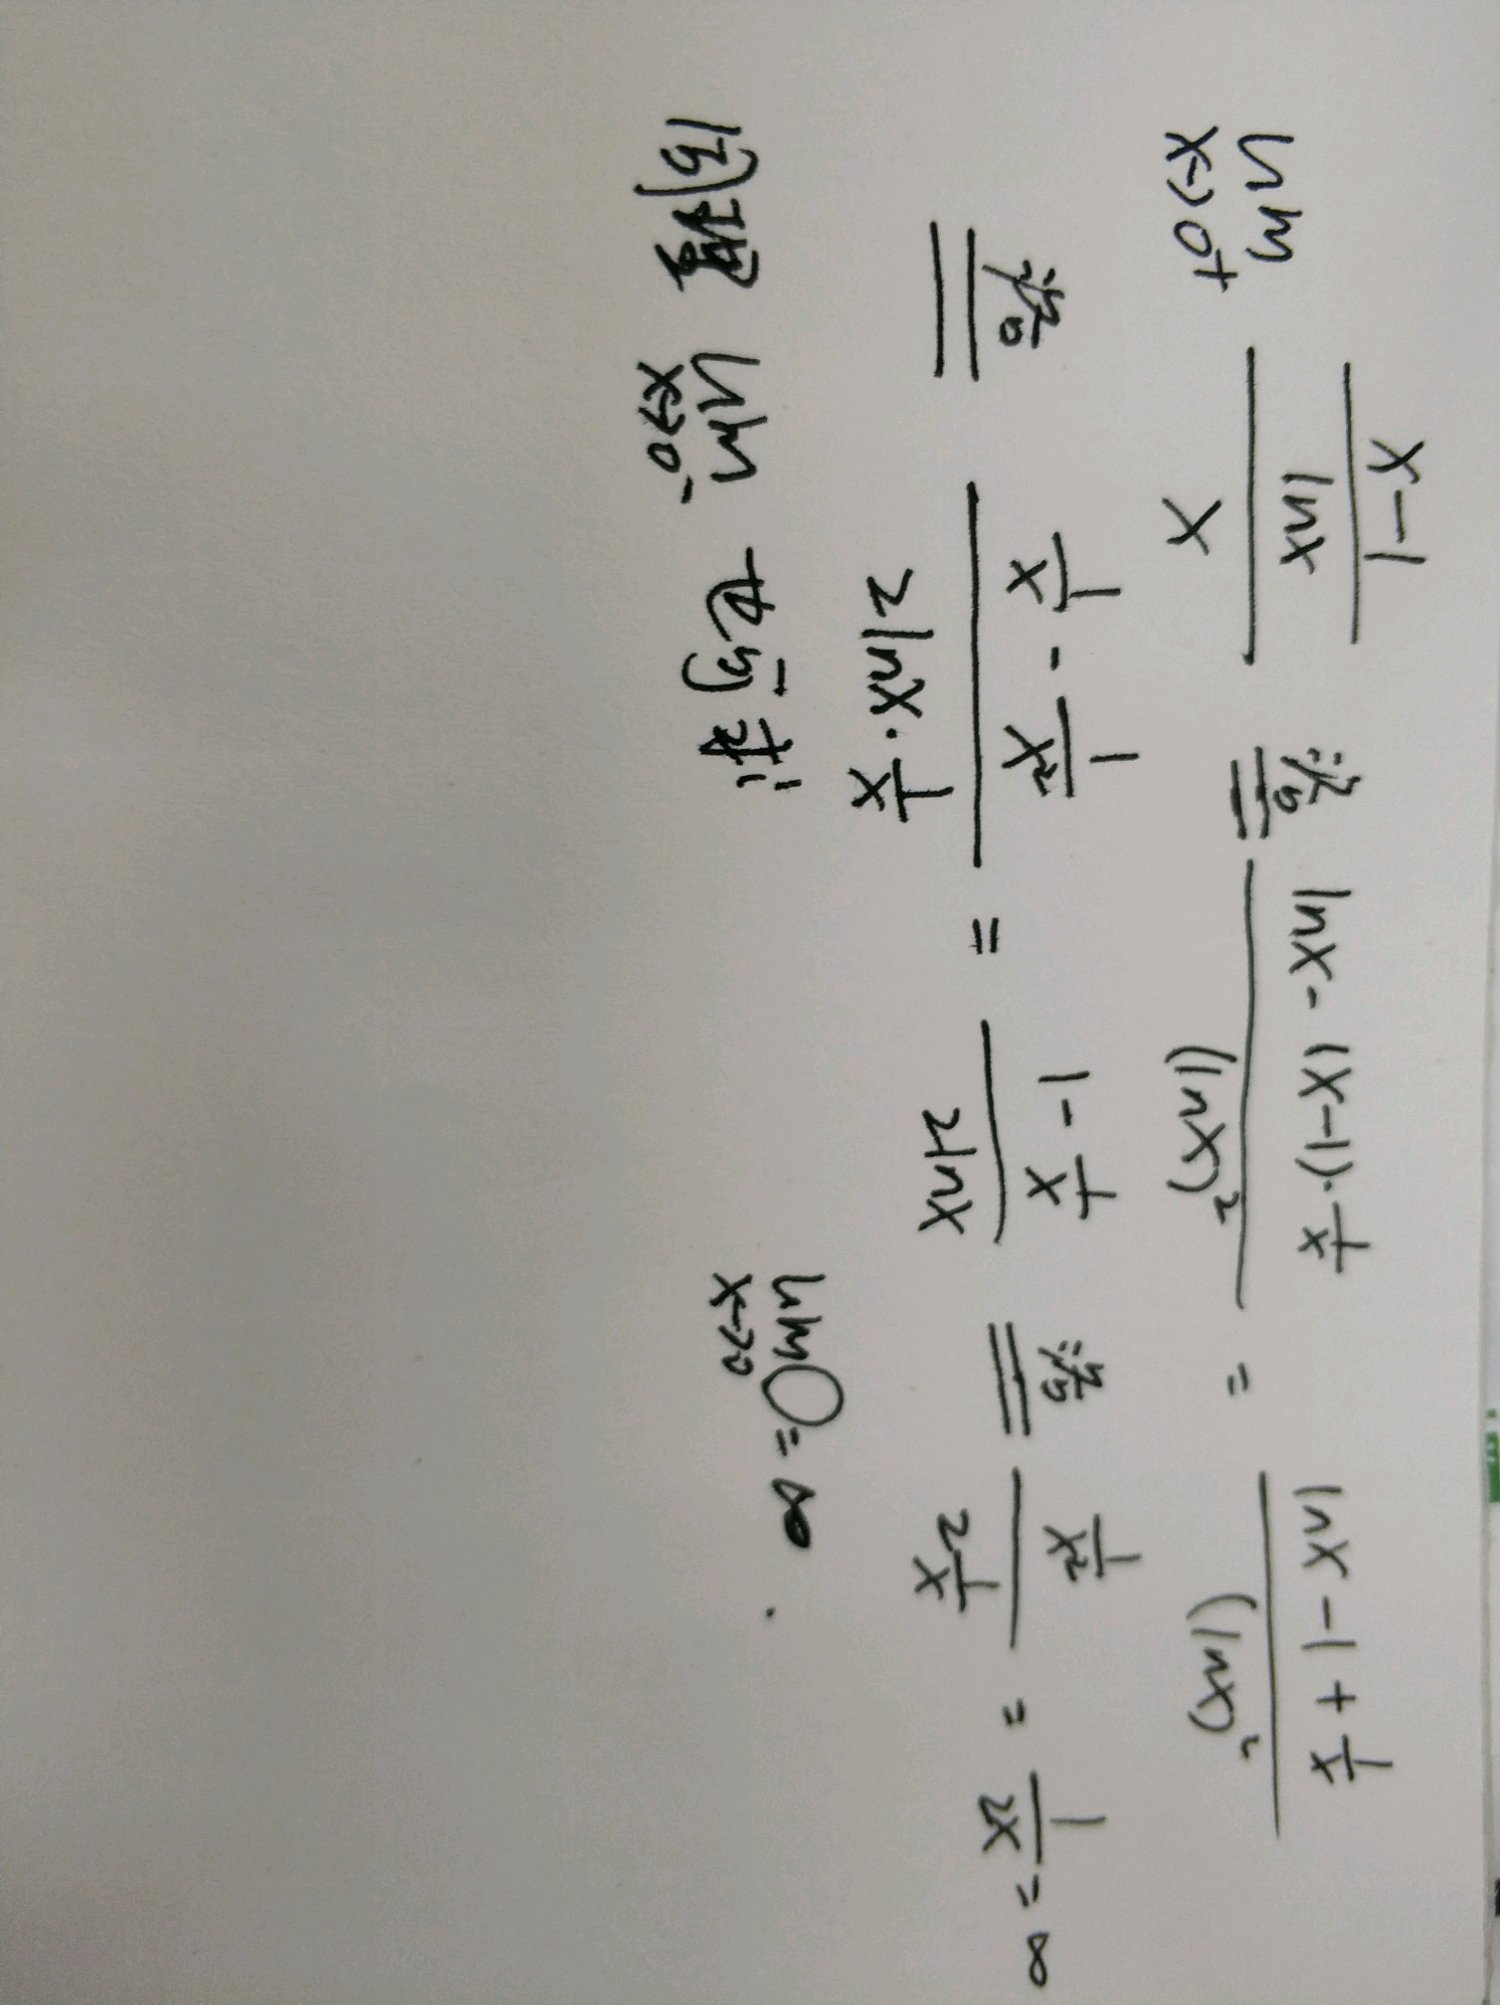 lim x→0+ ((x-1)/lnx)/x 洛= (lnx - (x-1)·1/x)/(lnx)² = (lnx - 1 + 1/x)/(lnx)²
洛= (1/x - 1/x²)/(2lnx·1/x) = (1 - 1/x)/(2lnx) 洛= (1/x²)/(2 1/x) = 1/2x = ∞
lim x→0⁻ lim x→0 ○ = ∞.